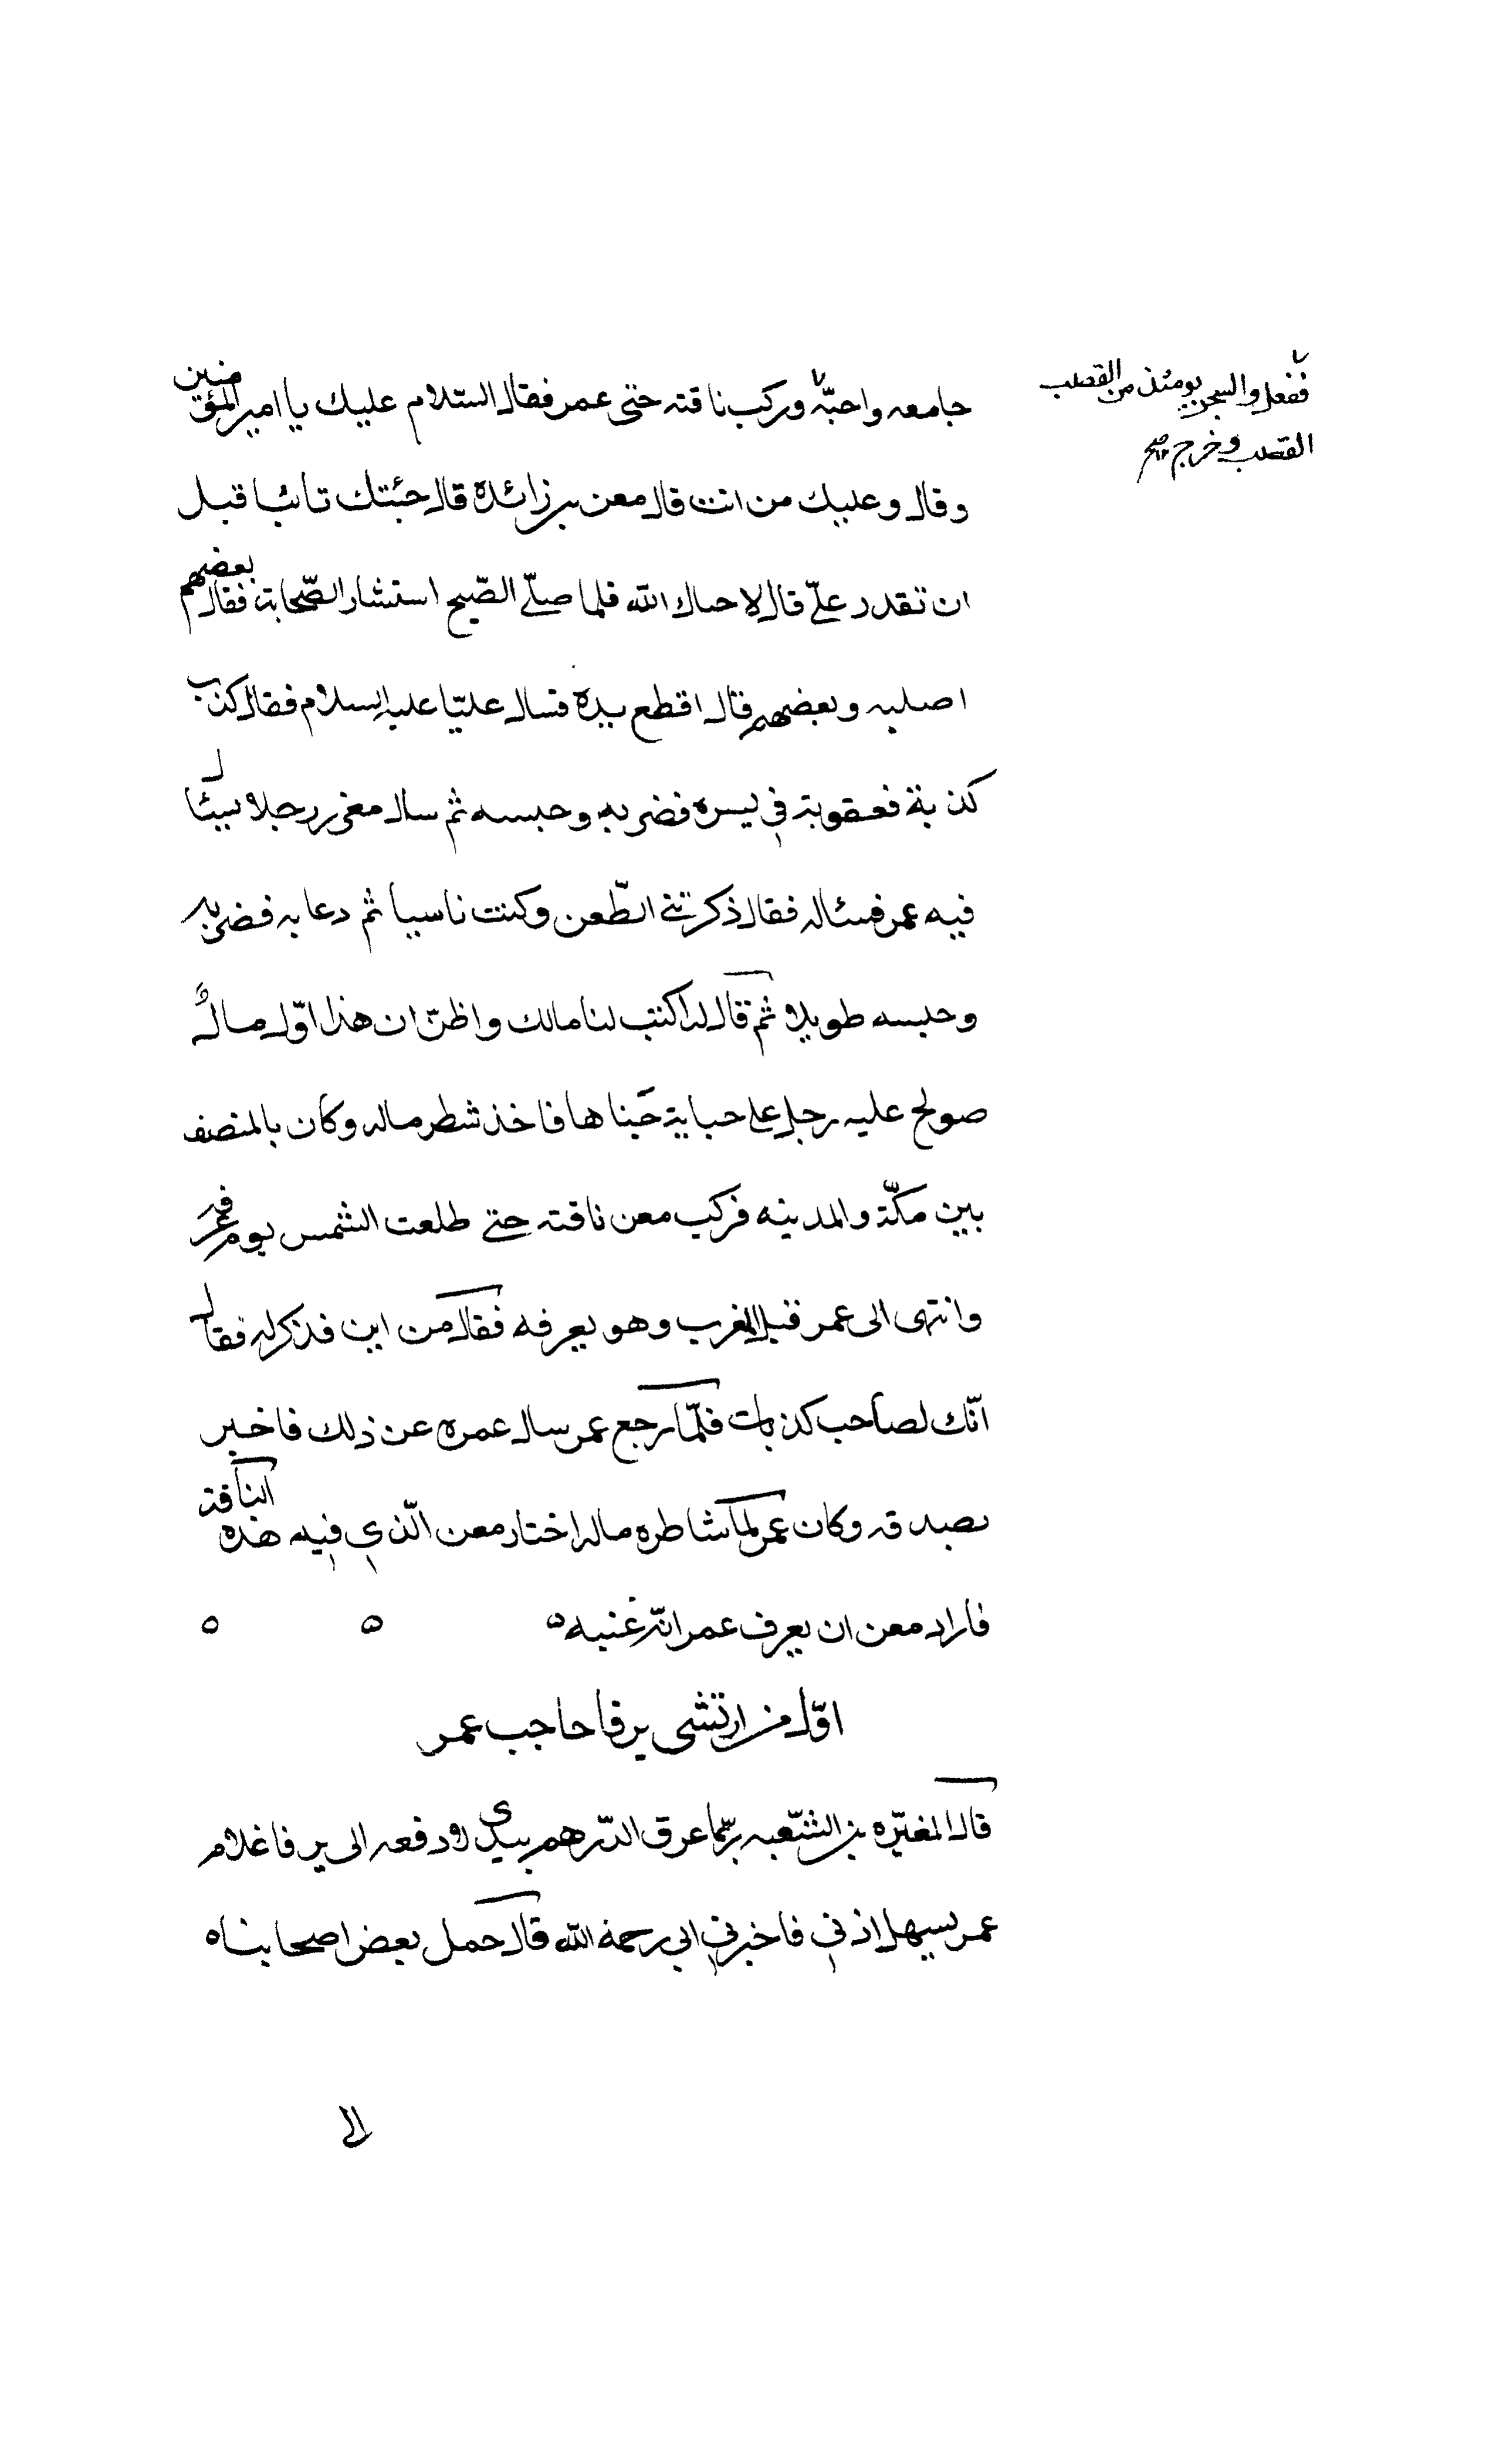 ففعل والسجن يومئذ من القصب
القصب وخرج صح
جامعه واحبّه وركب ناقته حتى عمر فقال السّلام عليك يا امير المؤمنين
وقال وعليك من انت قال معن بن زائدة قال جئتك تائبا قبل
ان تقدر علىّ قال لا حياك الله فلما صلّى الصّبح استشار الصّحابة فقال بعضهم
اصلبه وبعضهم قال اقطع يده فسال عليّا عليه السلام فقال كذب
كذبة فعقوبته في بسره فضربه وحبسه ثم سال رجلا
فيه عمر فسئاله فقال ذكرتني الطّعن وكنت ناسيا ثم دعا به فضربه
وحبسه طويلا ثم قال له اكتب لنا مالك واظنّ ان هذا اوّل مالٌ
صولح عليه رجل على جباية جَباها فاخذ شطر ماله وكان بالمنصف
بين مكّة والمدينه فركب معن ناقته حتى طلعت الشمس يوم
وانتهى الى عمر قبل المغرب وهو يعرفه فقال من اين فذكر له فقال
انّك لصاحب كذبات فلمّا رجع عمر سال عمره عن ذلك فاخبر
بصدقه وكان عمر لما شاطره ماله اختار معن الّذي فيه هذه الناقة
فاراد معن ان يعرف عمر انّه غبنه ه ه ه
اوّل من ارتشى يرفا حاجب عمر
قال المغيره بن الشّعبه ربّما عرق الدّرهم بيدى ادفعه الى يرفا غلام
عمر يسهل اذنى فاخبرني ابي رحمة الله قال حمل بعض اصحابناه
الى